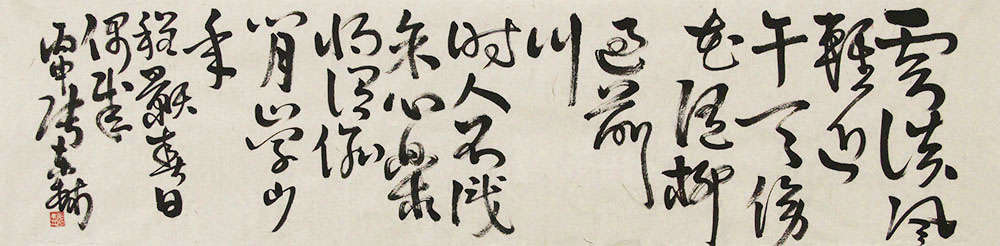 雲淡風
輕近
午天傍
花隨柳
過前
川
時人不識
余心樂
將謂偷
閒學少
年
程顥春日
偶成
丙申張